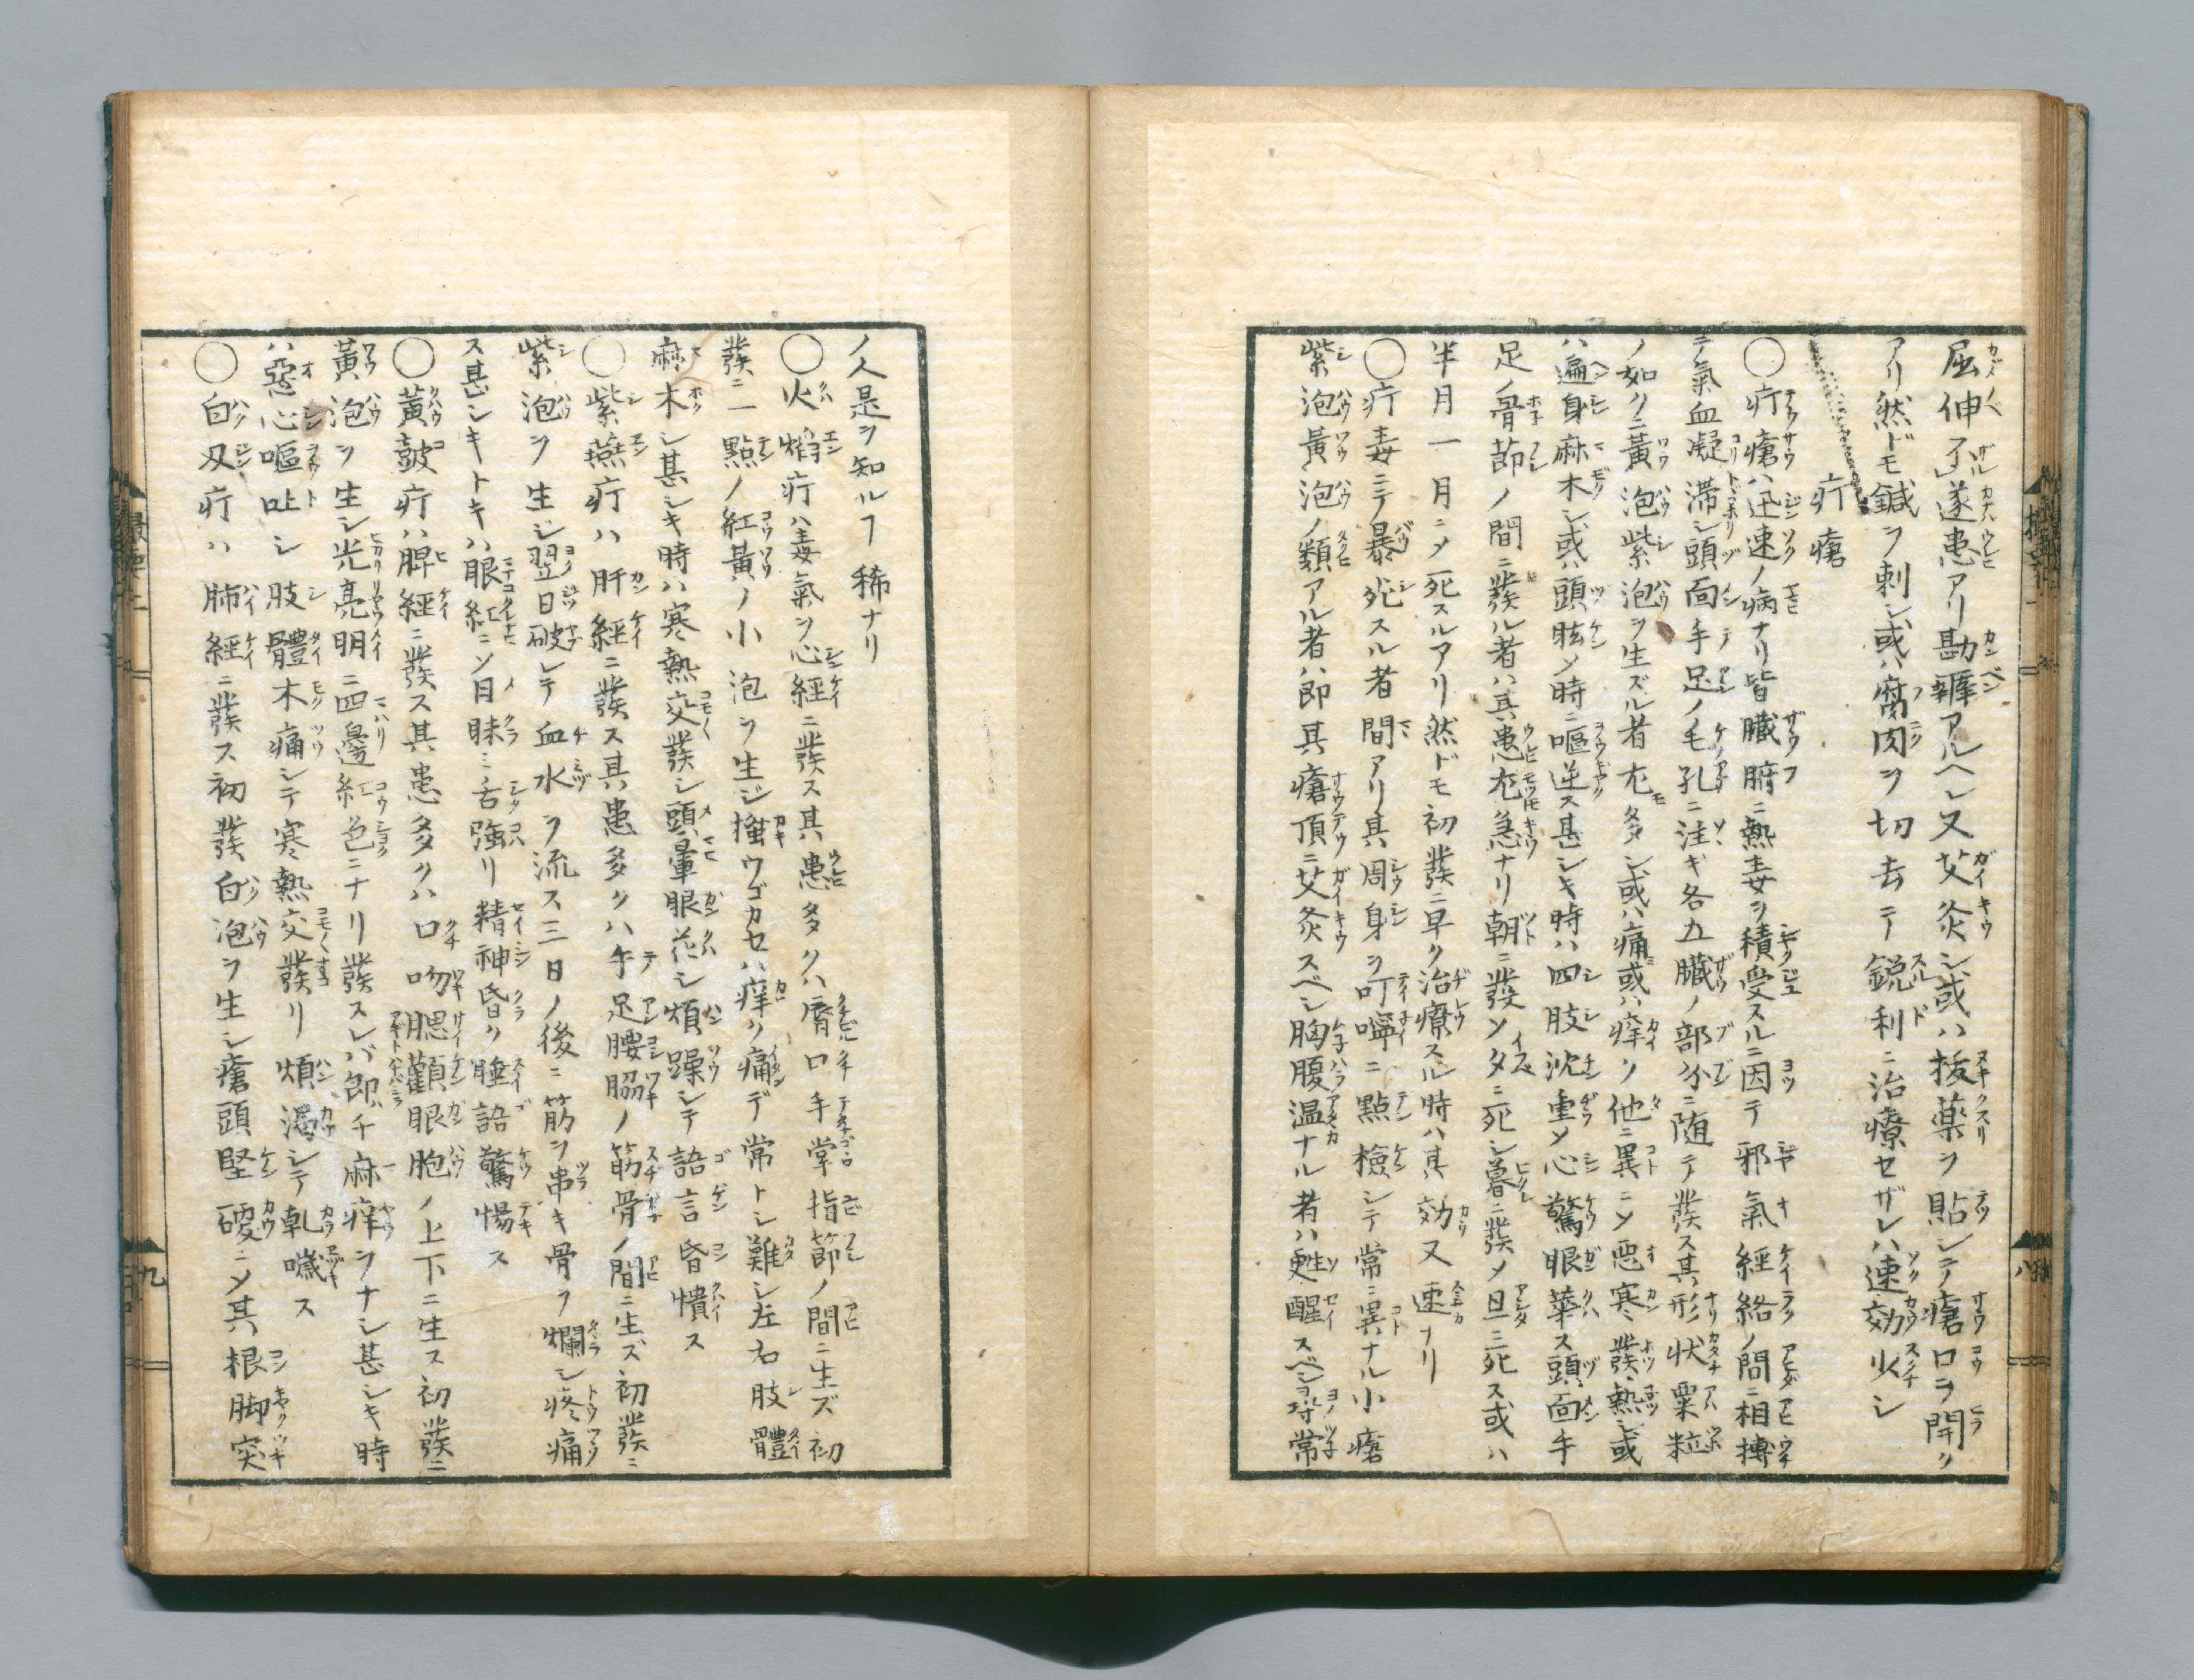 屈伸不遂患アリ勘辨アルヘシ又艾灸シ或ハ拔藥ヲ貼シテ瘡口ヲ開ク
アリ然ドモ鍼ヲ刺シ或ハ腐肉ヲ切去テ鋭利ニ治療セザレハ速効少シ
疔瘡
〇疔瘡ハ迅速ノ病ナリ皆臓腑ニ熱毒ヲ積受スルニ因テ邪氣經絡ノ間ニ相摶
テ氣血凝滞シ頭面手足ノ毛孔ニ注ギ各五臓ノ部分ニ随テ發ス其形状粟粒
ノ如クニ黃泡紫泡ヲ生ズル者尤多シ或ハ痛或ハ痒ク他ニ異ニメ惡寒發熱シ或
ハ遍身麻木シ或ハ頭眩メ時ニ嘔逆ス甚シキ時ハ四肢沈重メ心驚眼華ス頭面手
足ノ骨節ノ間ニ發ル者ハ其患尤急ナリ朝ニ發メ夕ニ死シ暮ニ發メ旦ニ死ス或ハ
半月一月ニメ死スルアリ然ドモ初發ニ早ク治療スル時ハ其効又速ナリ
〇疔毒ニテ暴死スル者間アリ其周身ヲ叮嚀ニ點檢シテ常ニ異ナル小瘡
紫泡黃泡ノ類アル者ハ即其瘡頂ニ艾灸スベシ胸腹温ナル者ハ甦醒スベシ尋常
ノ人是ヲ知ルヿ稀ナリ
〇火焰疔ハ毒氣ヲ心經ニ發ス其患多クハ脣口手掌指節ノ間ニ生ズ初
發ニ一點ノ紅黃ノ小泡ヲ生ジ搔ウゴカセハ痒ク痛デ常トシ難シ左右肢體
麻木シ甚シキ時ハ寒熱交發シ頭暈眼花シ煩躁シテ語言昏憒ス
〇紫燕疔ハ肝經ニ發ス其患多クハ手足腰脇ノ筋骨ノ間ニ生ズ初發ニ
紫泡ヲ生ジ翌日破レテ血水ヲ流ス三日ノ後ニ筋ヲ串キ骨ヲ爛シ疼痛
ス甚シキトキハ眼紅ニメ目昧ミ舌強リ精神昏ク睡語驚惕ス
〇黃鼓疔ハ脾經ニ發ス其患多クハ口吻腮顴眼胞ノ上下ニ生ス初發ニ
黃泡ヲ生シ光亮明ニ四邊紅色ニナリ發スレバ即チ麻痒ヲナシ甚シキ時
ハ惡心嘔吐シ肢體木痛シテ寒熱交發リ煩渴シテ乾噦ス
〇白刃疔ハ肺經ニ發ス初發白泡ヲ生シ瘡頭堅硬ニメ其根脚突
八
九